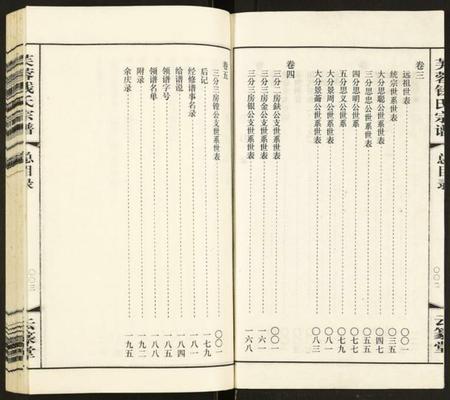 芙蓉钱氏宗谱 总目录 〇〇二 云篆堂
卷三
远祖世表
统宗世系世表
大分思聪公世系世表
三分思忠公世系世表
四分思明公世系
五分思义公世系
大分景周公世系世表
大分景斋公世系世表 〇八三
卷四
三分二房鈇公支世系世表 〇〇一
三分三房金公支世系世表 一六一
三分三房银公支世系世表 一六八
卷五
三分三房镗公支世系世表 〇〇一
后记 一七九
经修谱事名录 一八一
给谱说 一八四
领谱字号 一八五
领谱名单 一八八
附录 一九二
余庆录 一九五
芙蓉钱氏宗谱 总目录 〇〇三 云篆堂